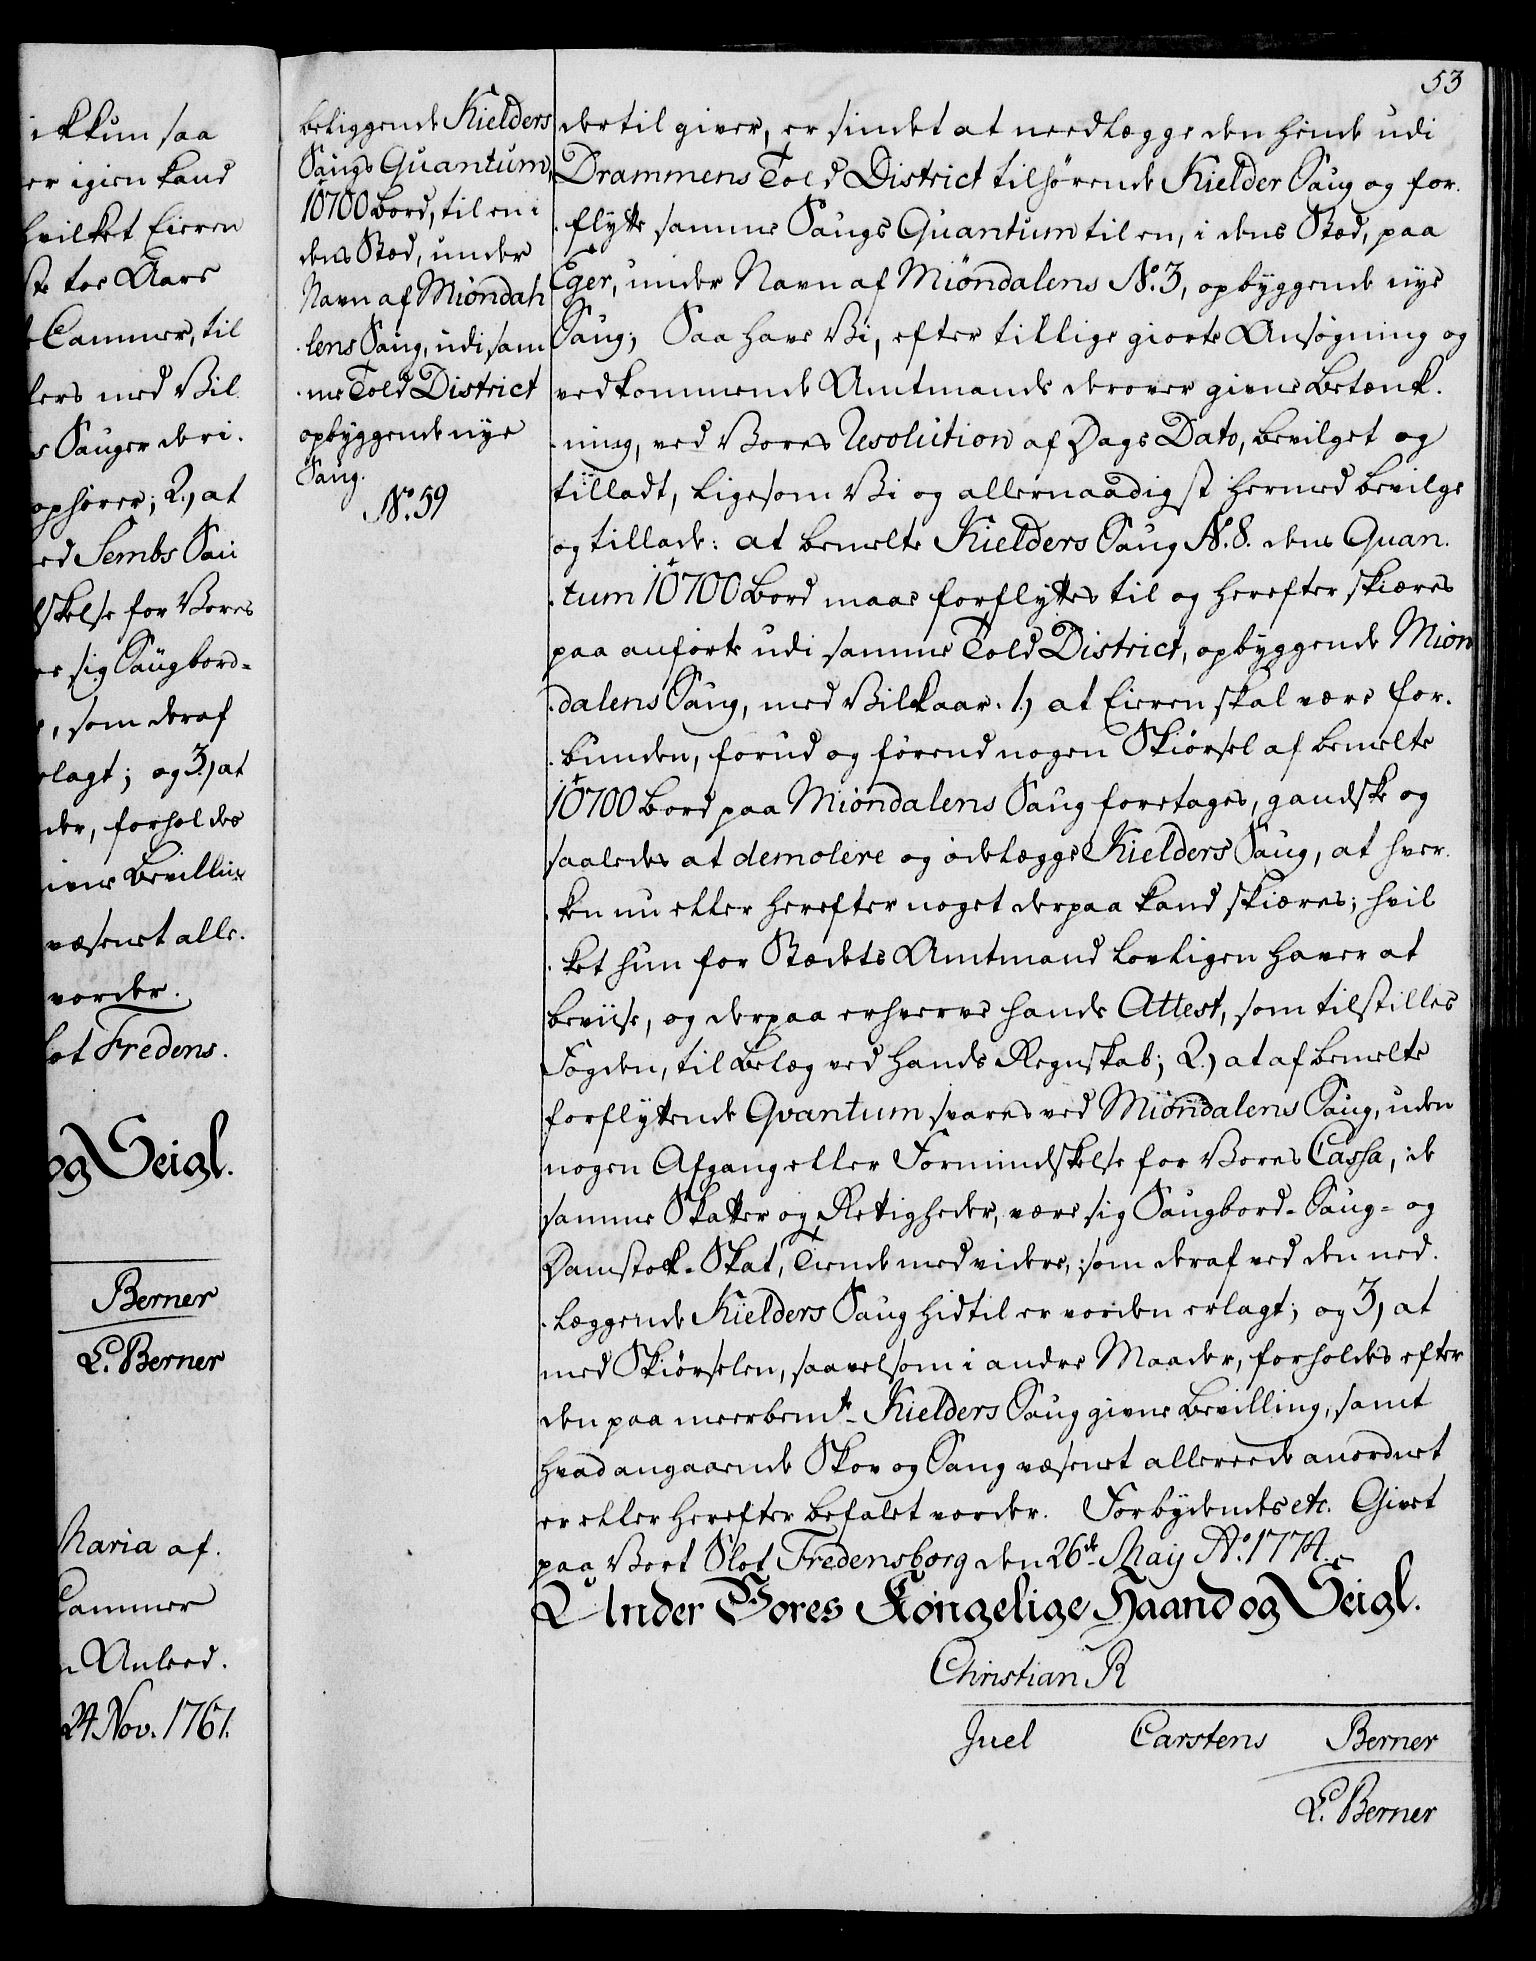 ikkun saa
er igien kand
hvilket Eieren
ste toe Aars
Cammer, til
lers med Vil
s Sauger deri.
ophører; 2.) at
ed Sembs Sau
dskelse for Vores
re sig Saugbord-
e, som deraf
rlagt; og 3.) at
der, forholdes
ivne Bevilling
væsenet alle.
vorder.
lot Fredens.
og Seigl.
Berner
L. Berner
Maria af.
Cammer
n Anleed.
24 Nov. 1767.
53
beliggende Kielders
Saugs Quantum,
10700 Bord, til en i
dens Stæd, under
Navn af Miöndah
lens Saug, udi sam
me Told District
opbyggende nye
Saug.
No. 59
dertil giver, er sindet at needlægge den hende udi
Drammens Told District tilhørende Kielder Saug og for.
flytte samme Saugs Quantum til en, i dens Stæd, paa
Eger, under Navn af Miöndalens No. 3, opbyggende nye
Saug; Saa have Vi, efter tillige giorte Ansøgning og
vedkommende Amtmands derover givne Betænk.
ning, ved Vores Resolution af Dags Dato, bevilget og
tilladt, ligesom Vi og allernaadigst hermed bevilge
og tillade: at bemelte Kielders Saug N. 8. dens Quan.
tum 10700 Bord maae forflyttes til og herefter skiæres
paa anførte udi samme Told District, opbyggende Miön
dalens Saug, med Vilkaar. 1.) at Eieren skal være for.
bunden, forud og førend nogen Skiørsel af bemelte
10700 Bord paa Miondalens Saug foretages, gandske og
saaledes at demolere og ödelægge Kielders Saug, at hver.
ken nu eller herefter noget derpaa kand skiæres; hvil
ket hun for Stædets Amtmand lovligen haver at
beviise, og derpaa erhverve hands Attest, som tilstilles
Fogden, til Belæg ved hands Regnskab; 2.) at af bemelte
forflyttende Qvantum svares ved Miöndalens Saug, uden
nogen Afgang eller Formindskelse for Vores Cassa, de
samme Skatter og Rettigheder, være sig Saugbord- Saug- og
Damstok-Skat, Tiende med videre, som deraf ved den ned.
læggende Kielders Saug hidtil er vorden erlagt; og 3) at
med Skiørselen, saavelsom i andre Maader, forholdes efter
den paa meerbemte Kielders Saug givne Bevilling, samt
hvad angaaende Skov og Saug væsenet allereede anordnet
er eller herefter befalet vorder. Forbydendes etc. Givet
paa Vort Slot Fredensborg den 26de May Ao. 1774.
Under Vores Kongelige Haand og Seigl.
Christian R
Juel Carstens Berner
L. Berner